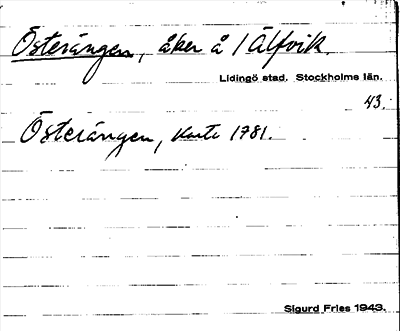 Österängen, åker å / Älfvik.
Lidingö stad. Stockholms län.
43.
Österängen, Karta 1781.
Sigurd Fries 1943.